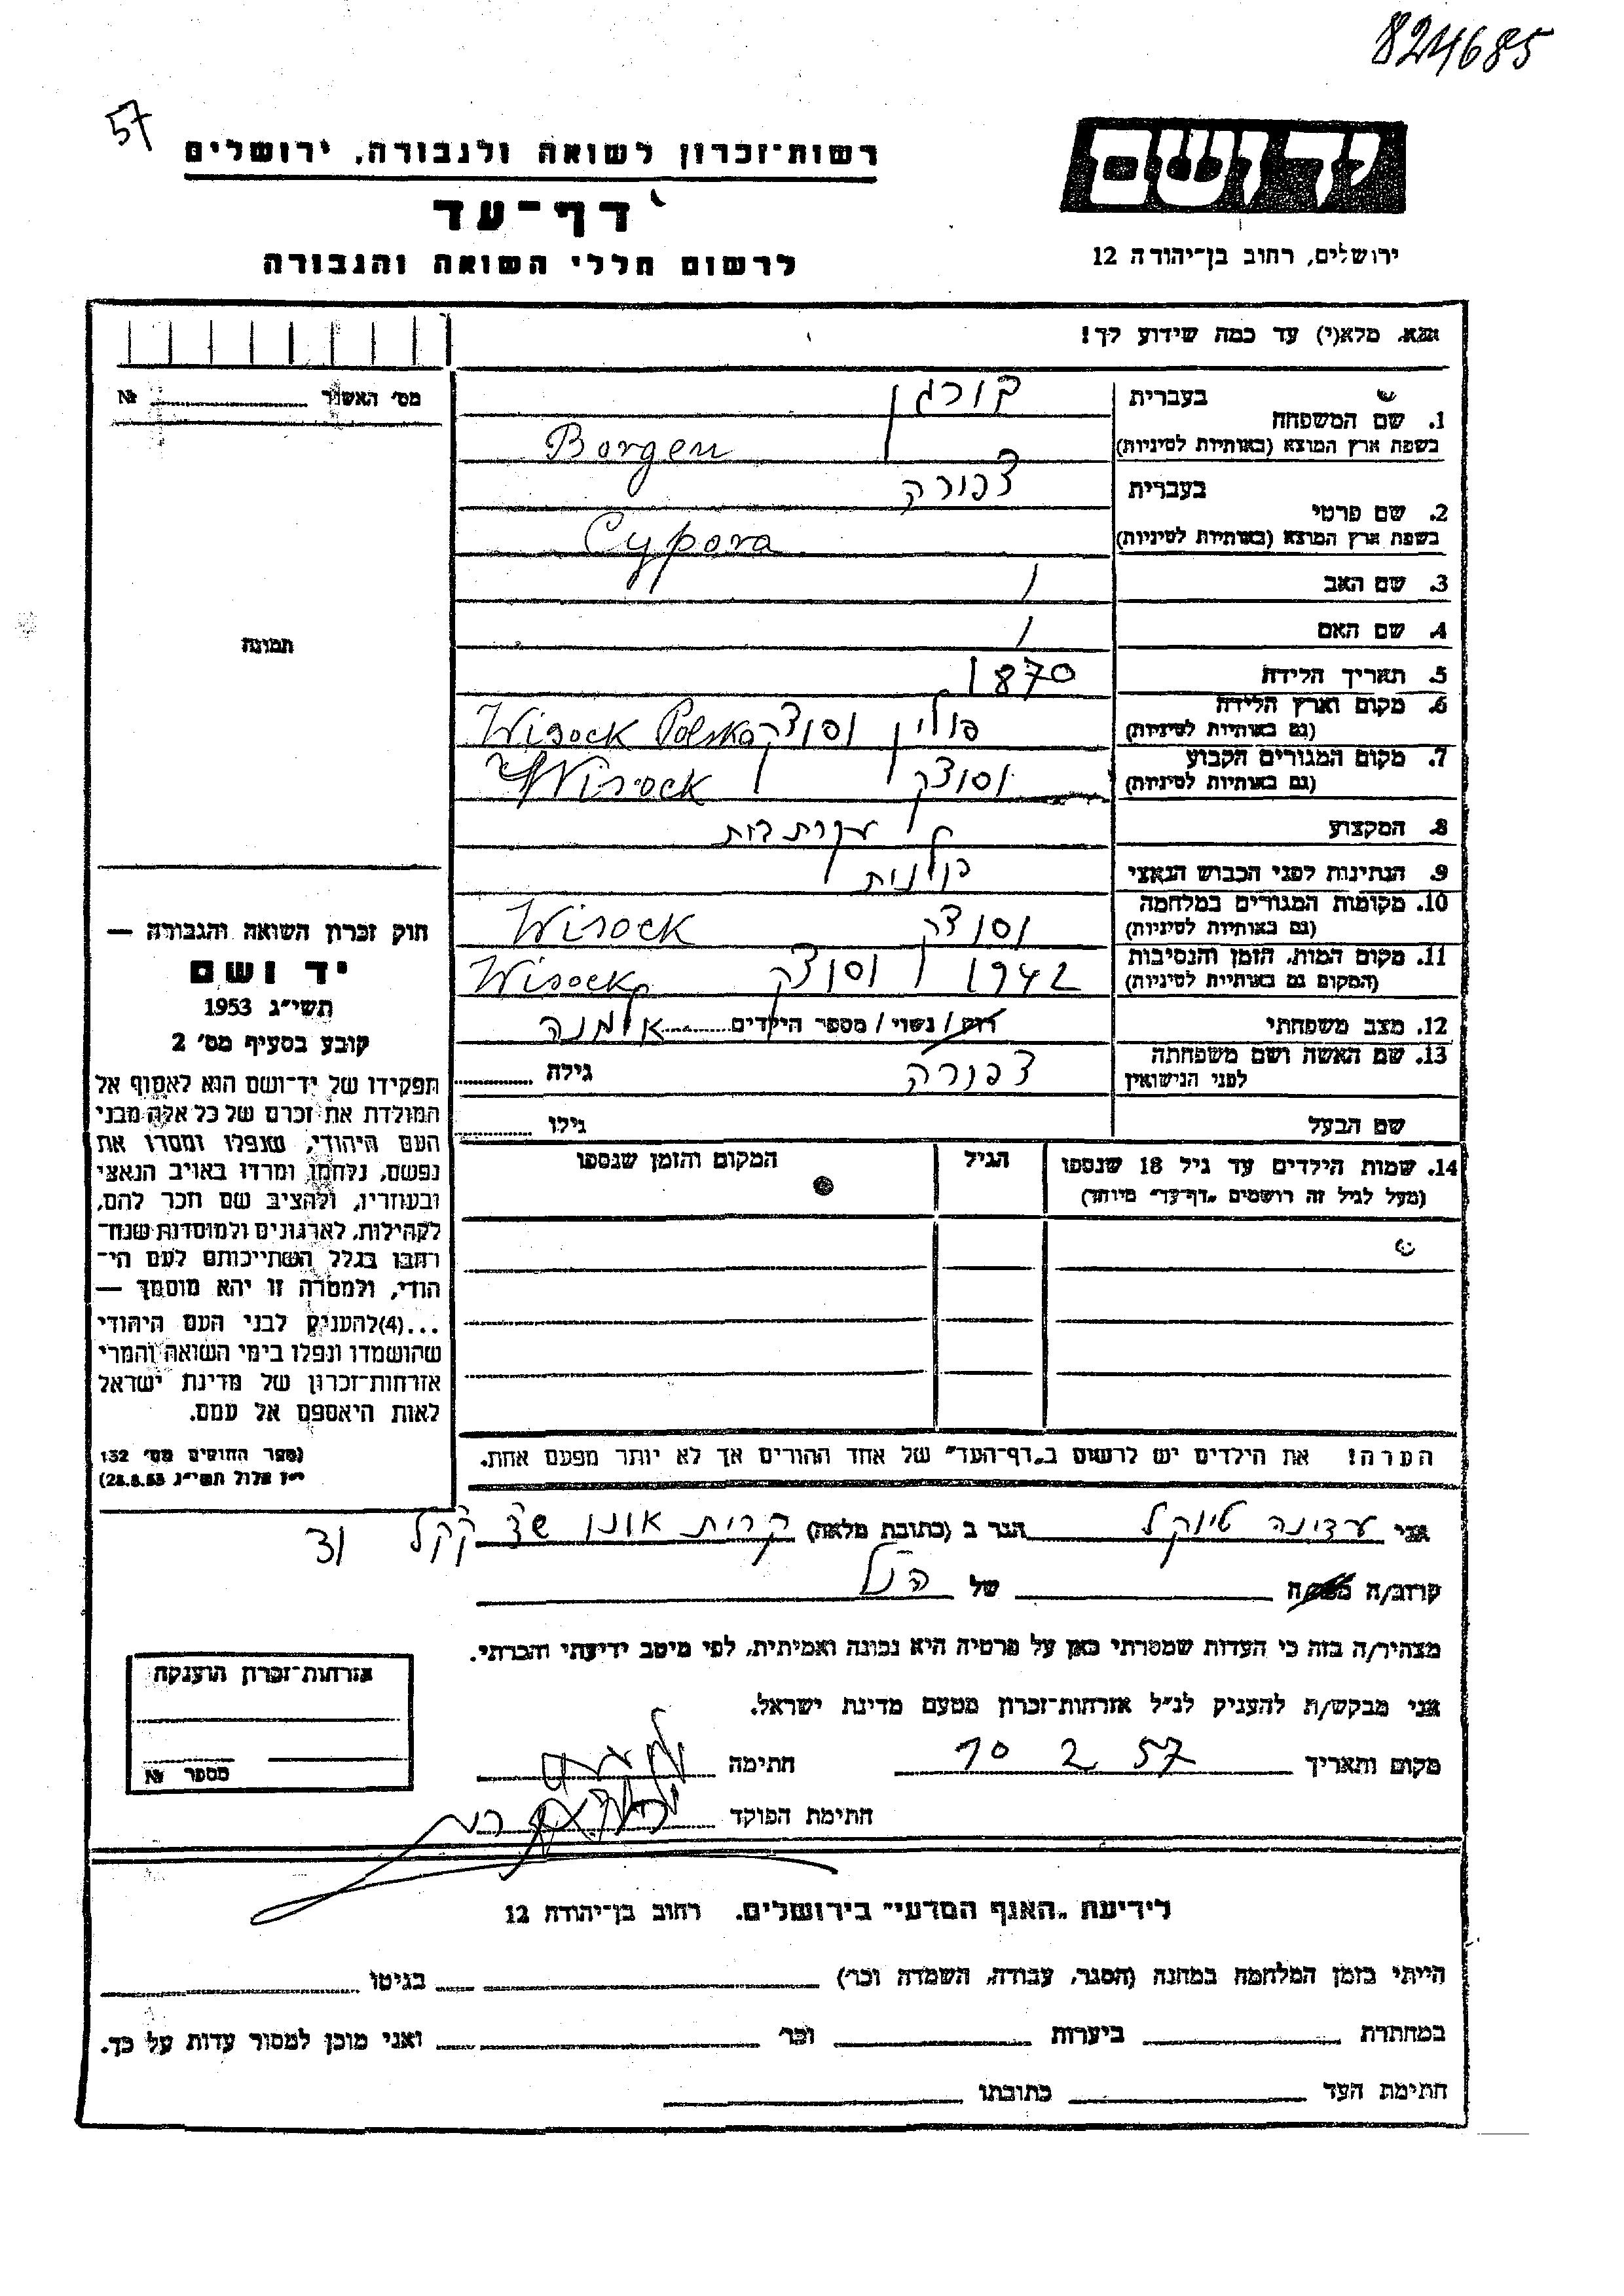 824685
57
יד ושם
ירושלים, רחוב בן־יהודה 12
רשות־זכרון לשואה ולגבורה, ירושלים
דף־עד
לרשום חללי השואה והגבורה
אנא, מלא(י) עד כמה שידוע לך!
מס׳ האשור № 
תמונה
1. שם המשפחה
בעברית בורגן
בשפת ארץ המוצא (באותיות לטיניות) Borgen
2. שם פרטי
בעברית צפורה
בשפת ארץ המוצא (באותיות לטיניות) Cypora
3. שם האב /
4. שם האם /
5. תאריך הלידה 1870
6. מקום וארץ הלידה
(גם באותיות לטיניות) פולין וסוצק Wisock Polska
7. מקום המגורים הקבוע
(גם באותיות לטיניות) וסוצק Wisock
8. המקצוע עקרת בית
9. הנתינות לפני הכבוש הנאצי פולנית
10. מקומות המגורים במלחמה
(גם באותיות לטיניות) וסוצק Wisock
11. מקום המות, הזמן והנסיבות
(המקום גם באותיות לטיניות) 1942 וסוצק Wisock
12. מצב משפחתי רוק / נשוי / מספר הילדים אלמנה
13. שם האשה ושם משפחתה
לפני הנישואין צפורה גילה
שם הבעל גילו
14. שמות הילדים עד גיל 18 שנספו
(מעל לגיל זה רושמים „דף־עד״ מיוחד)
הגיל
המקום והזמן שנספו
הערה! את הילדים יש לרשום ב„דף־העד״ של אחד ההורים אך לא יותר מפעם אחת.
חוק זכרון השואה והגבורה —
יד ושם
תשי״ג 1953
קובע בסעיף מס׳ 2
תפקידו של יד־ושם הוא לאסוף אל
המולדת את זכרם של כל אלה מבני
העם היהודי, שנפלו ומסרו את
נפשם, נלחמו ומרדו באויב הנאצי
ובעוזריו, ולהציב שם וזכר להם,
לקהילות, לארגונים ולמוסדות שנח־
רבו בגלל השתייכותם לעם הי־
הודי, ולמטרה זו יהא מוסמך —
...(4) להעניק לבני העם היהודי
שהושמדו ונפלו בימי השואה והמרי
אזרחות־זכרון של מדינת ישראל
לאות היאספם אל עמם.
(ספר החוקים מס׳ 132
י״ז אלול תשי״ג 28.8.53)
אני עדינה הגר ב (כתובת מלאה) קרית אונו
קרוב/ה של הנ״ל
מצהיר/ה בזה כי העדות שמסרתי כאן על פרטיה היא נכונה ואמיתית, לפי מיטב ידיעתי והכרתי.
אני מבקש/ת להעניק לנ״ל אזרחות־זכרון מטעם מדינת ישראל.
מקום ותאריך 10 2 57 חתימה
חתימת הפוקד
אזרחות־זכרון הוענקה
מספר №
לידיעת „האגף המדעי״ בירושלים. רחוב בן־יהודה 12
הייתי בזמן המלחמה במחנה (הסגר, עבודה, השמדה וכו׳) בגיטו
במחתרת ביערות וכו׳ ואני מוכן למסור עדות על כך.
חתימת העד כתובתו